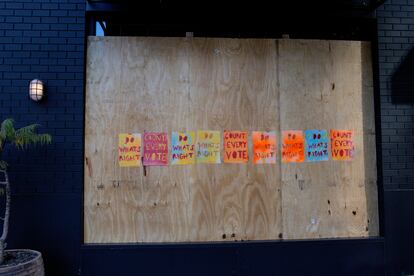 DO
WHAT'S
RIGHT
COUNT
EVERY
VOTE
DO
WHAT'S
RIGHT
DO
WHAT'S
RIGHT
COUNT
EVERY
VOTE
DO
WHAT'S
RIGHT
DO
WHAT'S
RIGHT
DO
WHAT'S
RIGHT
COUNT
EVERY
VOTE